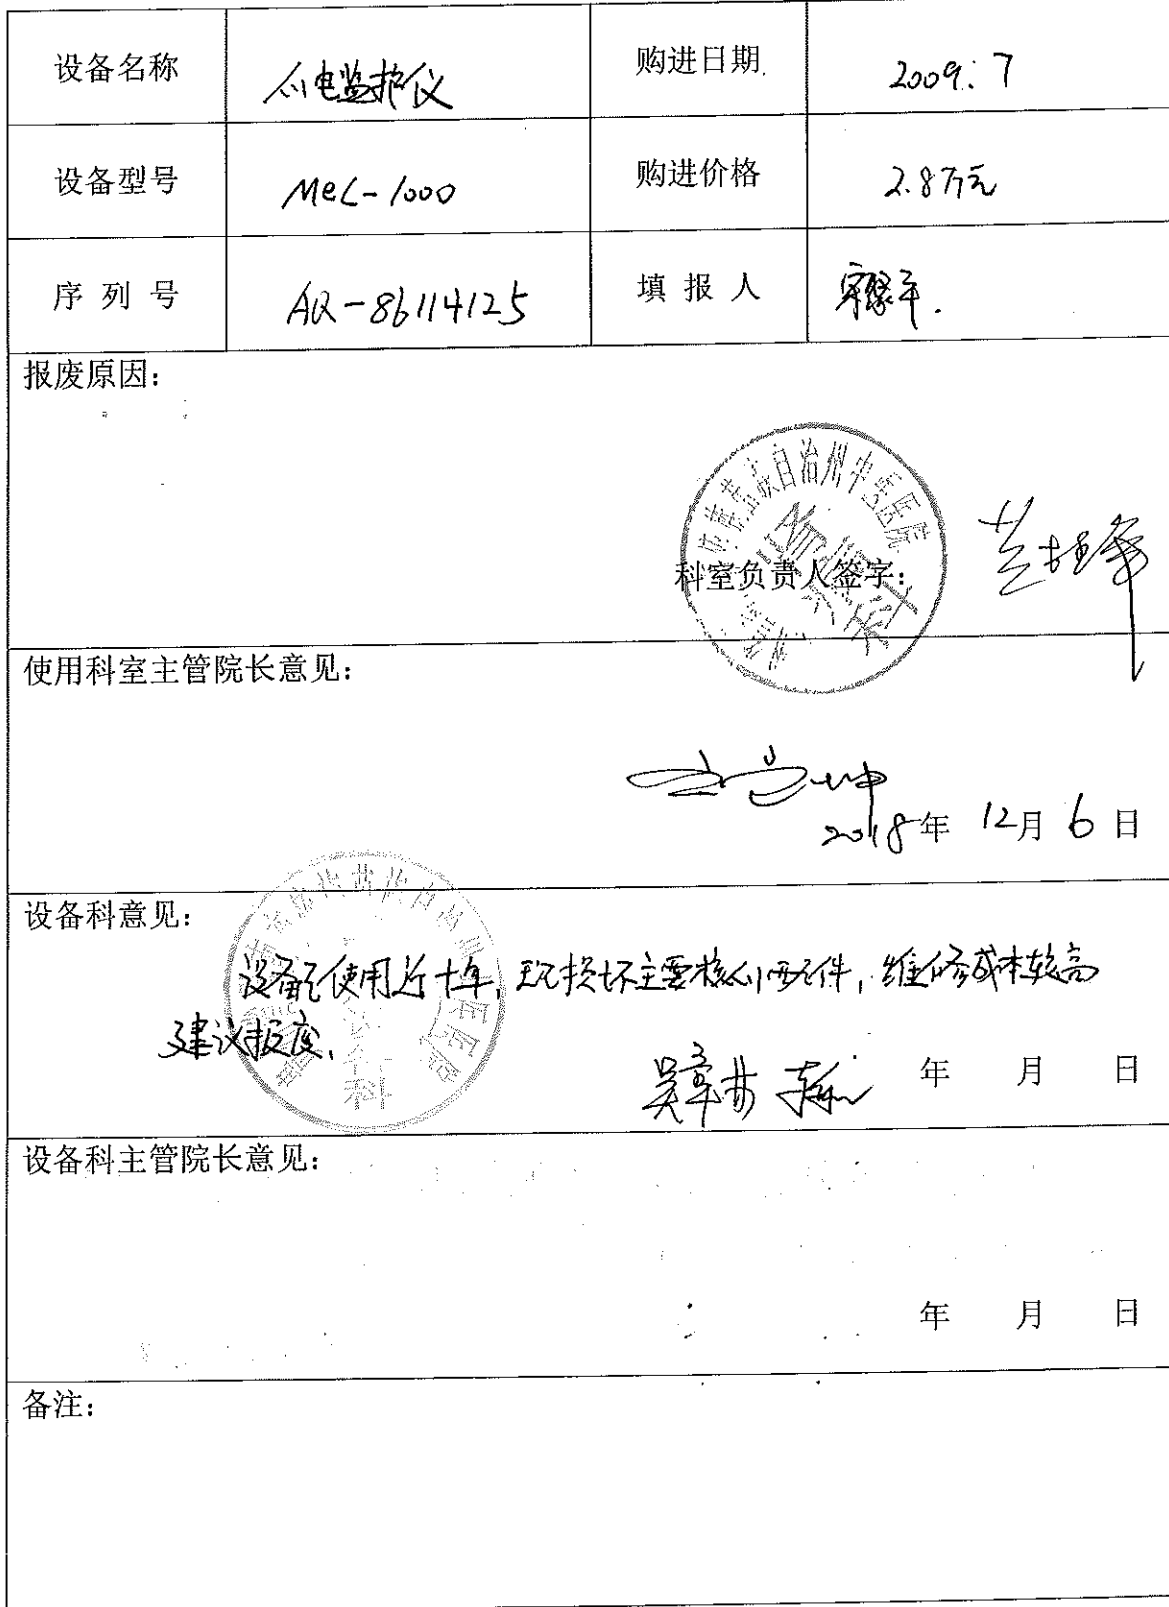 设备名称 心电监护仪 购进日期 2009.7
设备型号 MeC-1000 购进价格 2.8万元
序列号 AQ-86114125 填报人
报废原因:
自治州中医医院
科室负责人签字:
使用科室主管院长意见:
2018年 12月 6日
设备科意见:
设备已使用近十年,现已损坏主要核心元件,维修成本较高
建议报废.
年 月 日
设备科主管院长意见:
年 月 日
备注: